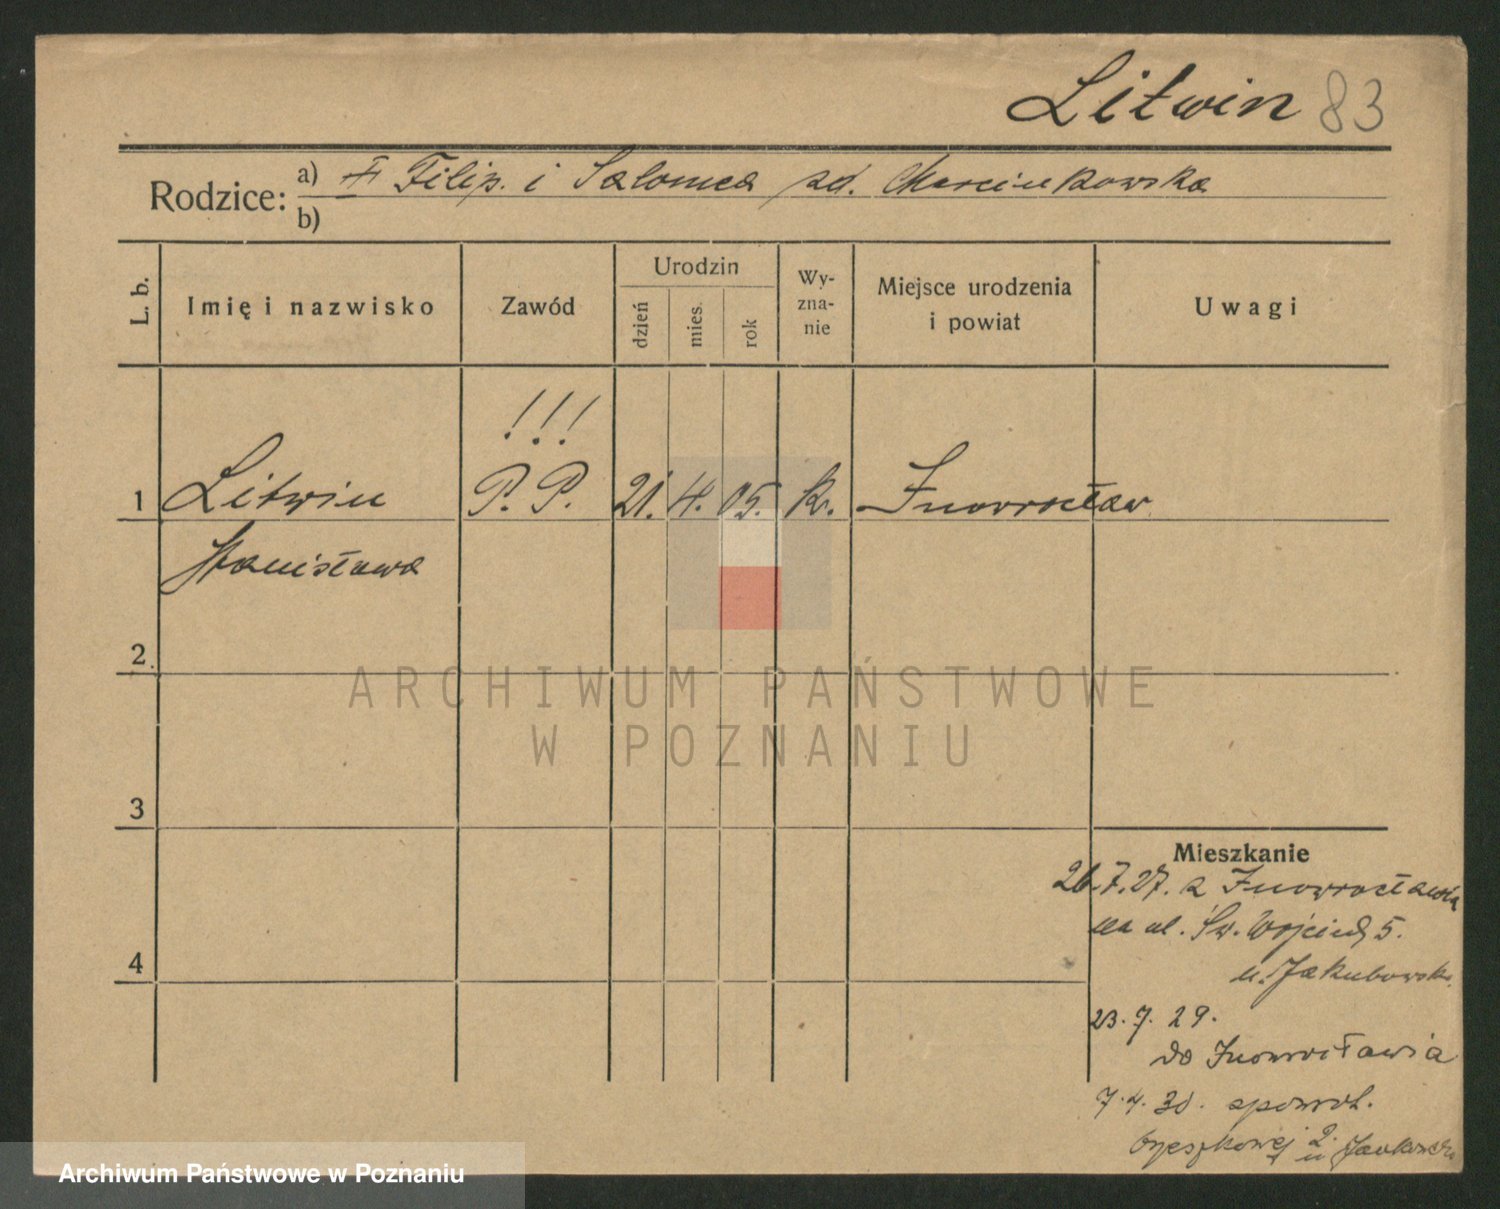 Litwin 83
Rodzice: a) Filip. i Salomea zd. Marcinkowska
b)
L. b.
Imię i nazwisko
Zawód
Urodzin
dzień
mies.
rok
Wy-
zna-
nie
Miejsce urodzenia
i powiat
Uwagi
!!!
1 Litwin P. P. 21. 4. 05. k. Inowrocław
Stanisława
2
ARCHIWUM PAŃSTWOWE
W POZNANIU
3
Mieszkanie
26.7.27. z Inowrocławia
na ul. Św. Wojciech 5.
u. Jakubowska
4
23.7.29.
do Inowrocławia
7.4.30. spowrot.
u
Archiwum Państwowe w Poznaniu